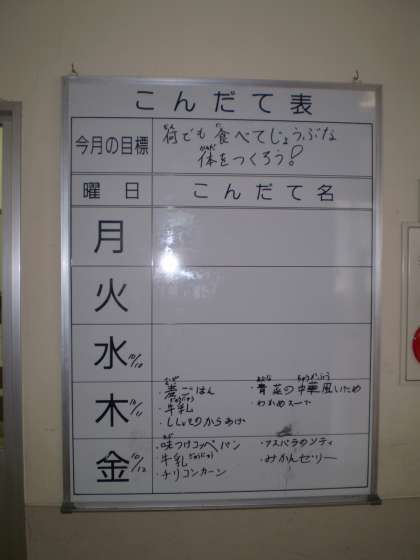 こんだて表
今月の目標
何でも食べてじょうぶな
体をつくろう!
曜日 こんだて名
月
火
水 10/10
木 10/11
麦ごはん
牛乳
ししゃものからあげ
青菜の中華風いため
わかめスープ
金 10/12
味つけコッペパン
牛乳
チリコンカーン
アスパラのソティ
みかんゼリー